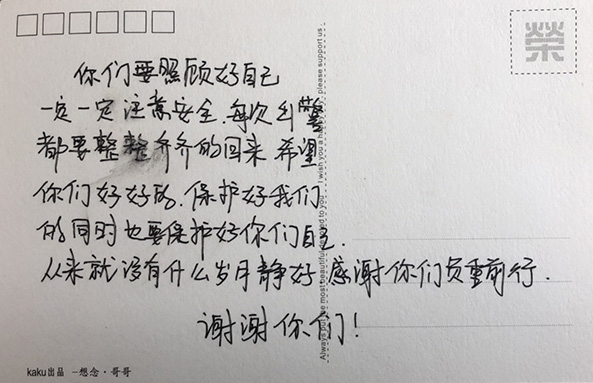 榮
你们要照顾好自己
一定一定注意安全.每次出警
都要整整齐齐的回来 希望
你们好好的.保护好我们
的同时也要保护好你们自己.
从来就没有什么岁月静好 感谢你们负重前行.
谢谢你们!
kaku出品 -想念·哥哥